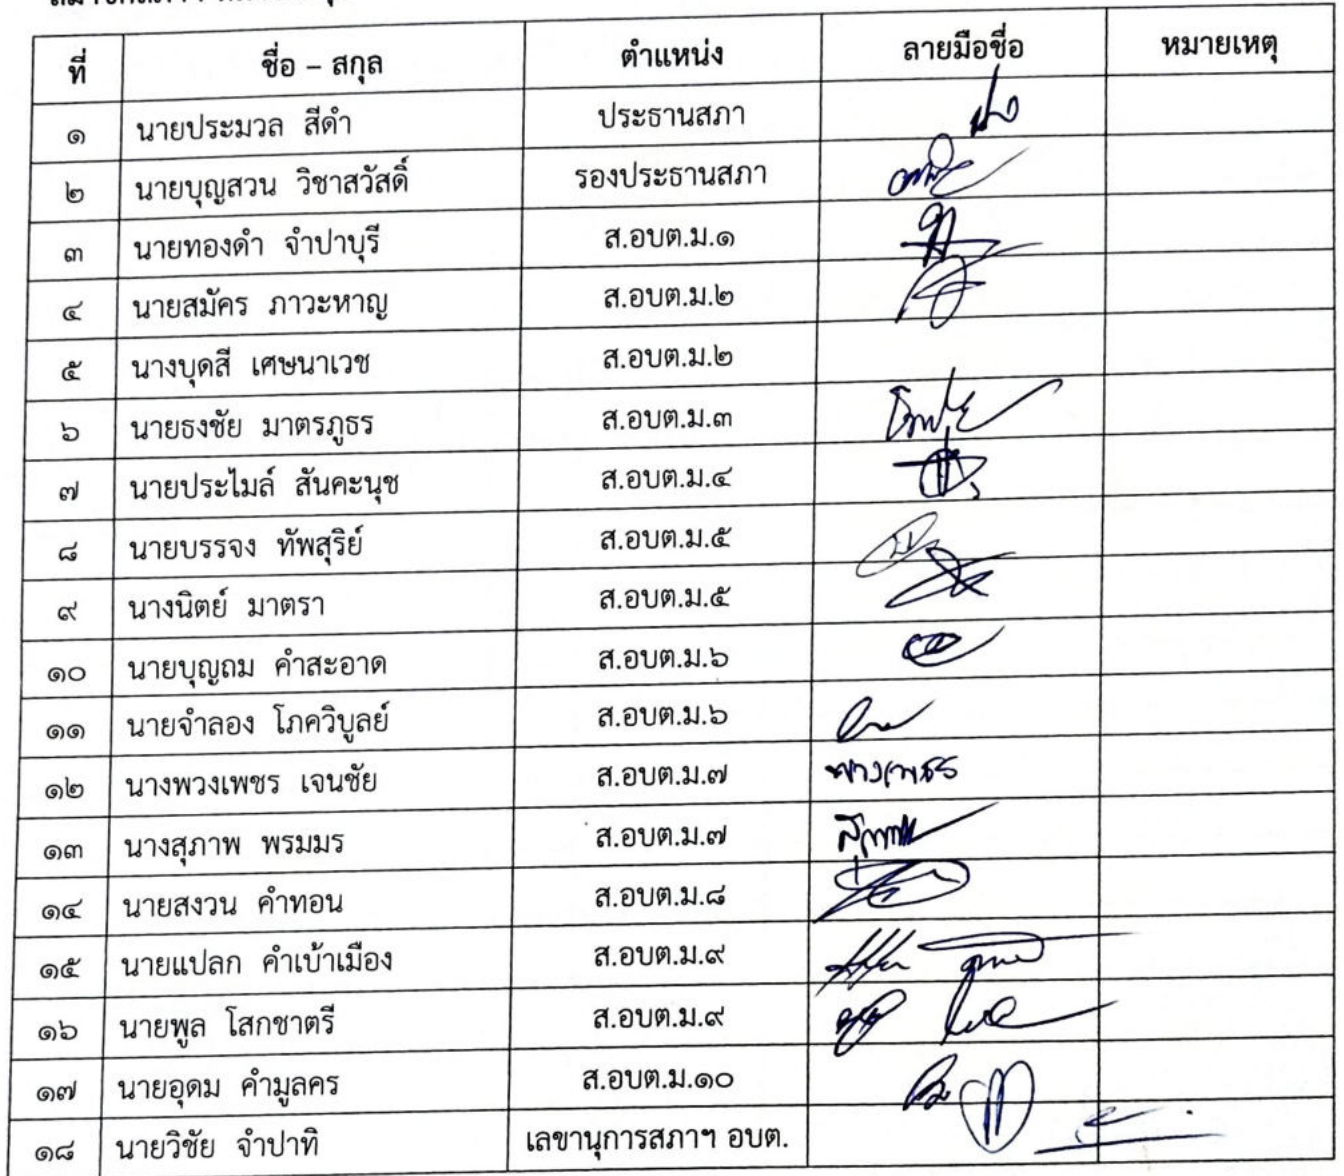 ที่ ชื่อ – สกุล ตำแหน่ง ลายมือชื่อ หมายเหตุ
๑ นายประมวล สีดำ ประธานสภา
๒ นายบุญสวน วิชาสวัสดิ์ รองประธานสภา
๓ นายทองดำ จำปาบุรี ส.อบต.ม.๑
๔ นายสมัคร ภาวะหาญ ส.อบต.ม.๒
๕ นางบุดสี เศษนาเวช ส.อบต.ม.๒
๖ นายธงชัย มาตรภูธร ส.อบต.ม.๓
๗ นายประไมล์ สันคะนุช ส.อบต.ม.๔
๘ นายบรรจง ทัพสุริย์ ส.อบต.ม.๕
๙ นางนิตย์ มาตรา ส.อบต.ม.๕
๑๐ นายบุญถม คำสะอาด ส.อบต.ม.๖
๑๑ นายจำลอง โภควิบูลย์ ส.อบต.ม.๖
๑๒ นางพวงเพชร เจนชัย ส.อบต.ม.๗ พวงเพชร
๑๓ นางสุภาพ พรมมร ส.อบต.ม.๗ สุภาพ
๑๔ นายสงวน คำทอน ส.อบต.ม.๘
๑๕ นายแปลก คำเบ้าเมือง ส.อบต.ม.๙
๑๖ นายพูล โสกชาตรี ส.อบต.ม.๙
๑๗ นายอุดม คำมูลคร ส.อบต.ม.๑๐
๑๘ นายวิชัย จำปาทิ เลขานุการสภาฯ อบต.